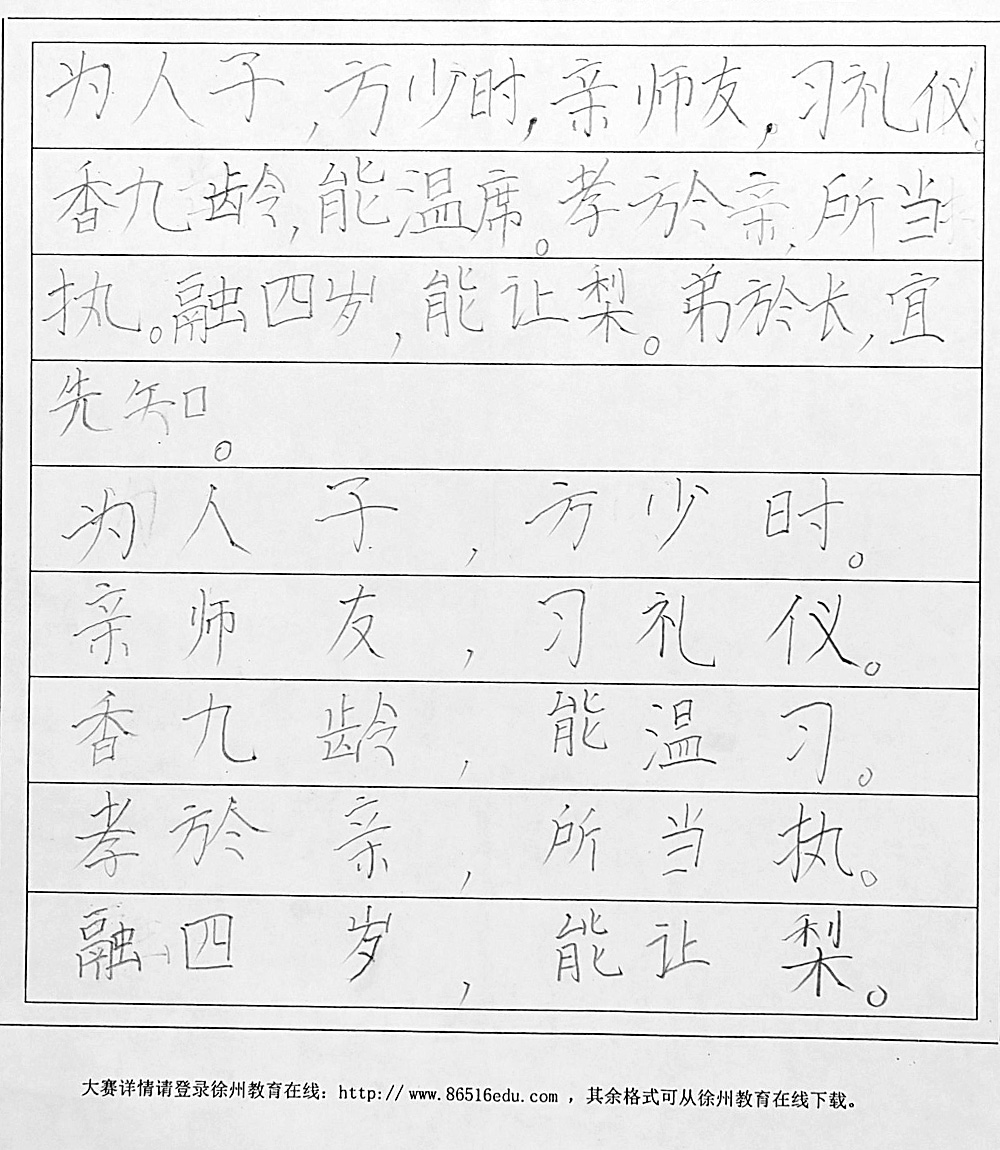 为人子，方少时，亲师友，习礼仪。
香九龄，能温席。孝於亲，所当
执。融四岁，能让梨。弟於长，宜
先知。
为人子，方少时。
亲师友，习礼仪。
香九龄，能温习。
孝於亲，所当执。
融四岁，能让梨。
大赛详情请登录徐州教育在线：http://www.86516edu.com，其余格式可从徐州教育在线下载。